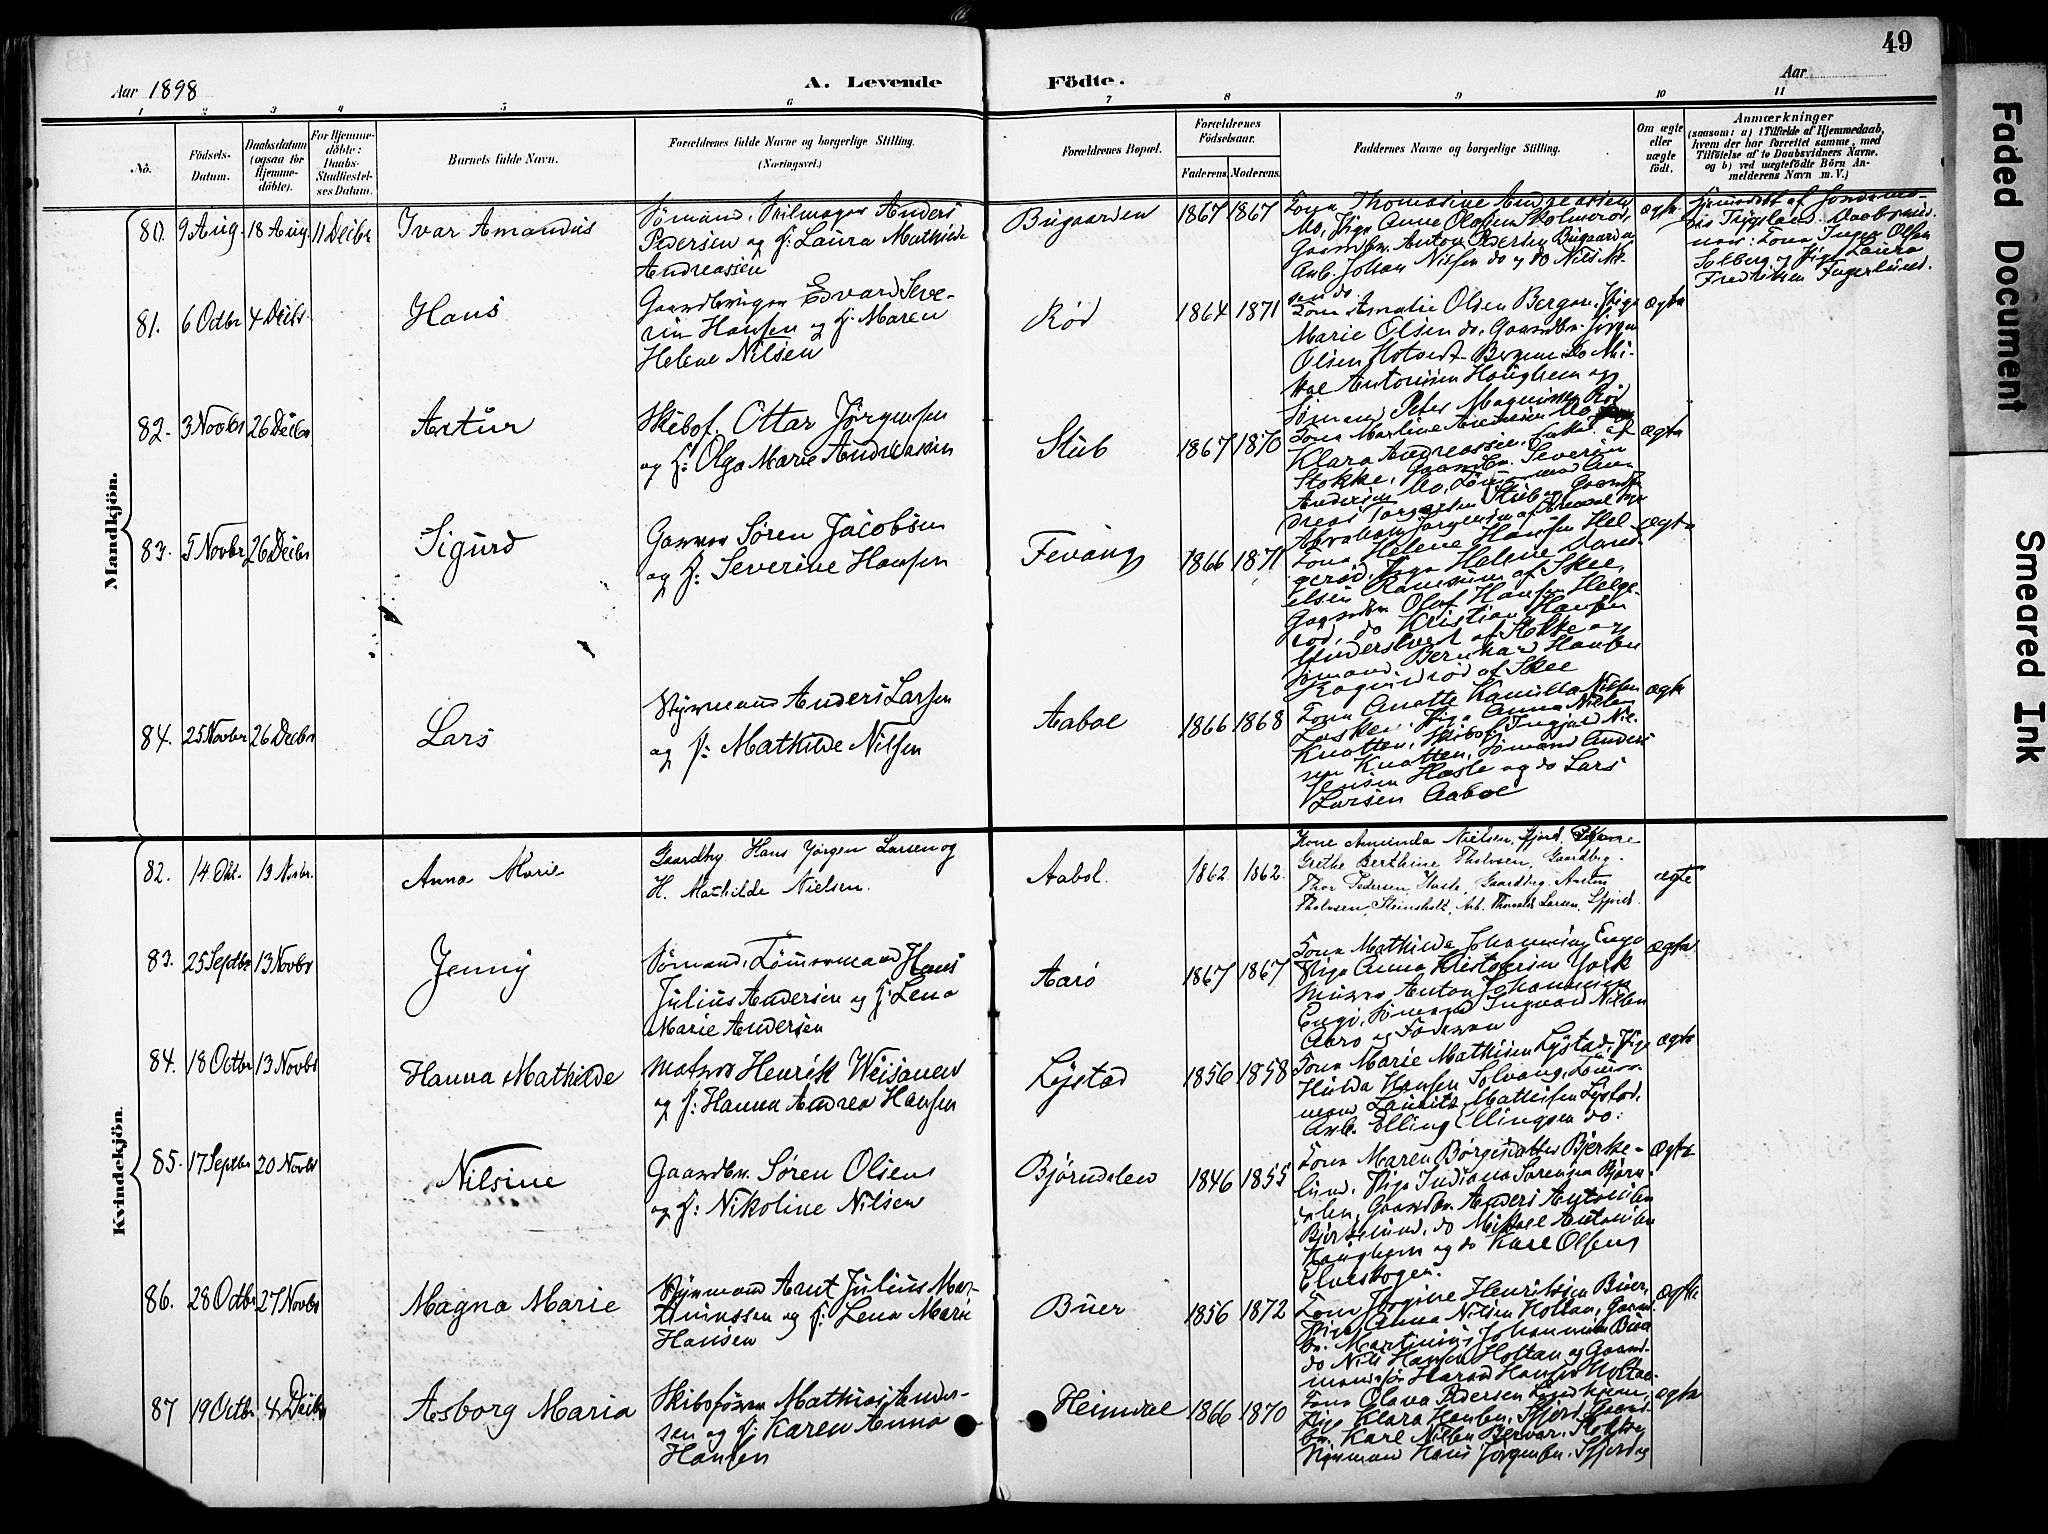 49
Aar 1898
A. Levende Födte.
Aar
1 2 3 4 5 6 7 8 9 10 11
No.
Födsels-Datum.
Daabsdatum (ogsaa for Hjemmedöbte).
For Hjemmedöbte: Daabs-Stadfæstelses Datum.
Barnets fulde Navn.
Forældrenes fulde Navne og borgerlige Stilling. (Næringsvei.)
Forældrenes Bopæl.
Forældrenes Födselsaar.
Faderens. Moderens.
Faddernes Navne og borgerlige Stilling.
Om ægte eller uægte födt.
Anmærkninger
(saasom: a) i Tilfælde af Hjemmedaab,
hvem der har forrettet samme, med
Tilföielse af to Daabsvidners Navne,
og b) ved uægtefödte Börn Anmelderens Navn m. V.)
Mandkjön.
80. 9 Aug. 18 Aug. 11 Decbr Ivar Amandus
Sømand, Seilmager Anders
Pedersen og H: Laura Mathilde
Andreassen
Bugaarden 1867 1867
Kona Thomasine Andreassen
Mo, Pige Anne Olasen
Gaardbr. Anton Pedersen Bugaarden
Arb. Johan Nilsen do og do Nils
ægte
Hjemmedøbt af
Daabsvid-
ner: Kona Inger Olsen
Solberg og Pige Laura
Fredriksen Fagerlund.
81. 6 Octbr 4 Decbr. Hans
Gaardbruger Edvard Seve-
rin Hansen og H: Maren
Helene Nilsen
Rød 1864 1871
Kona Amalie Olsen Bergan, Pige
Marie Olsen do, Gaardbr. Jørgen
Olsen Hotvedt Bergan do Mi-
kal Antonisen Haughem og
Sømand Peter Magnussen Rød
ægte
82. 3 Novbr 26 Decbr Artur
Skibsf. Ottar Jørgensen
og H: Olga Marie Andreassen
Stub 1867 1870
Kona Martine Andersen Mo
Klara Andreassen, af
Stokke, Gaardbr. Severin
Andersen Mo,
Torgersen Stub og
Abraham Jørgensen af
ægte
83. 5 Novbr 26 Decbr Sigurd
Garver Søren Jacobsen
og H: Severine Hansen
Fevang 1866 1871
Kona Helene Hansen Hel-
gerød, Pige Helene
af Skee,
Gaardbr. Olaf Hansen Helge-
rød, do Kristian Hansen
af Stokke og
Sømand Bernhard Hansen
af Skee
ægte
84. 25 Novbr 26 Decbr Lars
Styrmand Anders Larsen
og H: Mathilde Nilsen
Aabol 1866 1868
Kona Anette Kamilla Nilsen
Pige Anna Nilsen
Knatten, Skibsf. Ingvald Nil-
sen Knatten, Sømand Anders
Jensen Hasle og do Lars
Larsen Aabol
ægte
Kvindekjön.
82. 14 Okt. 13 Novbr. Anna Marie
Gaardbg Hans Jørgen Larsen og
H. Mathilde Nielsen.
Aabol. 1862 1862.
Kone Amunda Nielsen,
Grethe Berthine Tholvsen, Gaardbg.
Thor Pedersen, Hasle, Gaardbg. Anton
Tholvsen, Steinsholt, Arb. Thorvald Larsen,
ægte
83. 25 Septbr 13 Novbr Jenny
Sømand, Tømmermand Hans
Julius Andersen og H: Lena
Marie Andersen
Aarø 1867 1867
Kona Mathilde Johannesen Engø
Pige Anna Kristofersen York
Murer Anton Johannesen
Engø, Sømand Ingvald Nilsen
Aarø og Faderen
ægte
84. 18 Octbr 13 Novbr Hanna Mathilde
Matros Henrik Weisanen
og H: Hanna Andrea Hansen
Lystad 1856 1858
Kona Marie Mathisen Lystad, Pige
Hulda Hansen Solvang, Tømmer-
mand Lauritz Mathisen Lystad,
Arb. Elling Ellingsen do.
ægte
85. 17 Septbr 20 Novbr Nilsine
Gaardbr. Søren Olsen
og H: Nikoline Nilsen
Bjørndalen 1846 1855
Kona Maren Børgesdatter Bjerke-
lund, Pige Indiana Sørensen Bjørn-
dalen, Gaardbr. Anders Antonisen
Bjerkelund, do Mikael Antonisen
Haughem og do Karl Olsen
Elveskogen.
ægte
86. 28 Octbr 27 Novbr Magna Marie
Styrmand Arnt Julius Mar-
thinussen og H: Lena Marie
Hansen
Buer 1856 1872
Kona Jørgine Henriksen Buer,
Pige Anna Nilsen Holtan, Gaard-
br. Martinius Johannesen Buer
do Nils Hansen Holtan og Gaard-
mandssøn Harald Hansen Holtan
ægte
87 19 Octbr 4 Decbr Aasborg Maria
Skibsfører Mathias Ander-
sen og H: Karen Anna
Hansen
Heimdal 1866 1870
Kona Olava Pedersen
Pige Klara Hansen, Gaard-
br. Karl Nilsen Stokke,
Styrmand Hans Jørgensen,
ægte
Faded Document
Smeared Ink